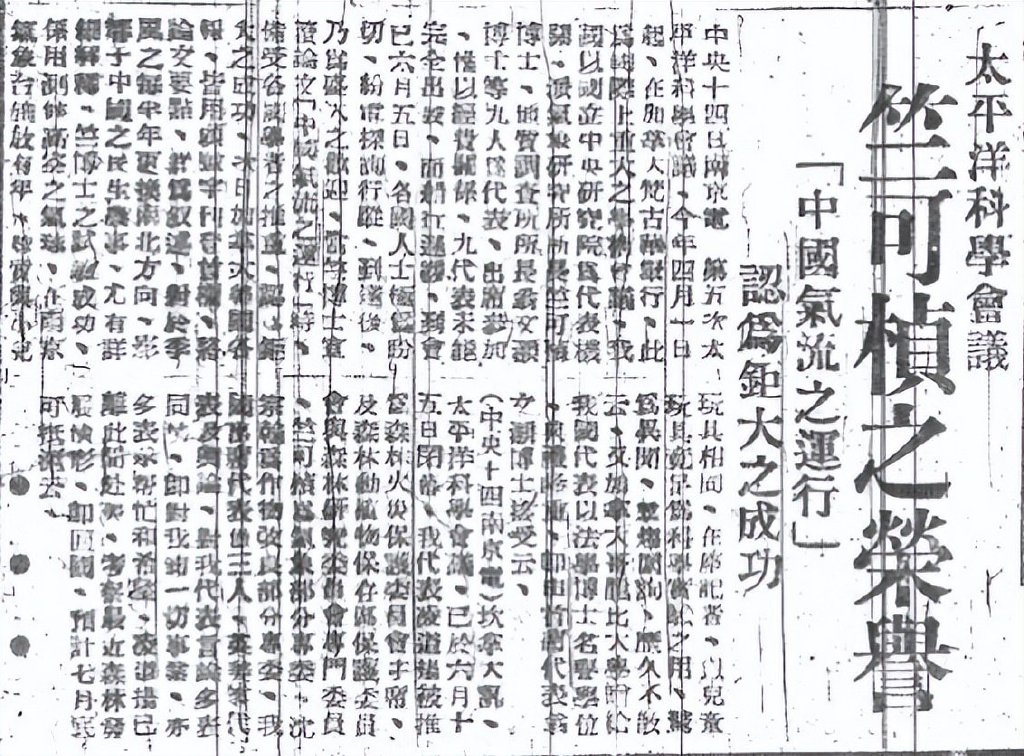 太平洋科學會議
竺可楨之榮譽
「中國氣流之運行」
認爲鉅大之成功
中央十四日南京電　第五次太
平洋科學會議、今年四月一日
起、在加拿大梵古華舉行、此
爲　陸上重大之　　會議、我
國以國立中央研究院爲代表機
關、　氣象研究所所長竺可楨
博士、地質調查所所長翁文灝
博士等九人爲代表、出席參加
、惟以經費關係、九代表未能
完全出發、而船行遲緩、到會
已六月五日、各國人士極爲盼
切、紛電探詢行蹤、到達後、
乃爲盛大之歡迎、當竺博士宣
讀論文「中國氣流之運行」時、
備受各國學者之推重、認爲鉅
大之成功、次日加拿大各國各
報、皆用頭號字刊登首欄、將
論文要點、詳爲叙述、對於季
風之每半年更換南北方向、影
響于中國之民生農事、尤有詳
細解釋、竺博士之試驗成功、
係用測候高空之氣球、在南京
氣象台施放有年、　　與小兒
玩具相同、在座記者、以兒童
玩具竟是爲科學實驗之用、　
爲異聞、　　　詢、歷久不散
云、又加拿大哥倫比大學贈給
我國代表以法學博士名譽學位
、　　　　、即由首席代表翁
文灝博士接受云、
（中央十四南京電）坎拿大訊、
太平洋科學會議、已於六月十
五日閉幕、我代表凌道揚被推
爲森林火災保護委員會主席、
及森林動植物保存區保護委員
會與森林研究委員會專門委員
、竺可楨爲氣象部分專委、沈
宗瀚爲作物改良部分專委、我
國出席代表僅三人、英美等代
表及輿論、對我代表言論多表
同情、即對我國一切事業、亦
多表示幫忙和希望、凌道揚已
離此間赴美、考察最近森林發
展情形、即回國、預計七月底
可抵滬云、